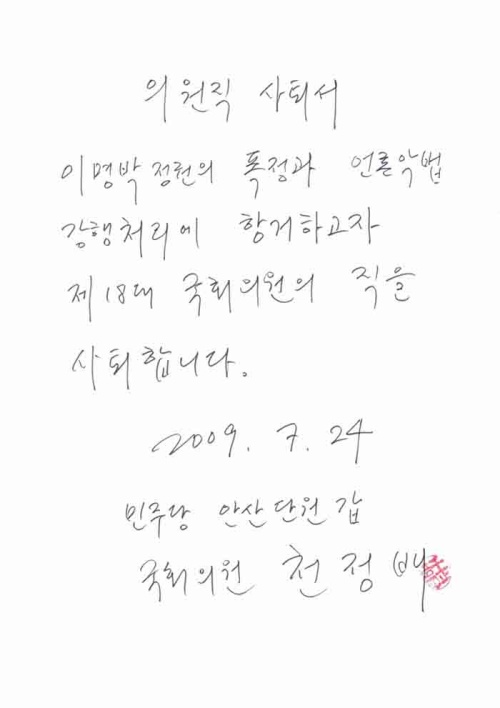 의원직 사퇴서
이명박 정권의 폭정과 언론악법
강행처리에 항거하고자
제18대 국회의원의 직을
사퇴합니다.
2009. 7. 24
민주당 안산단원갑
국회의원 천정배